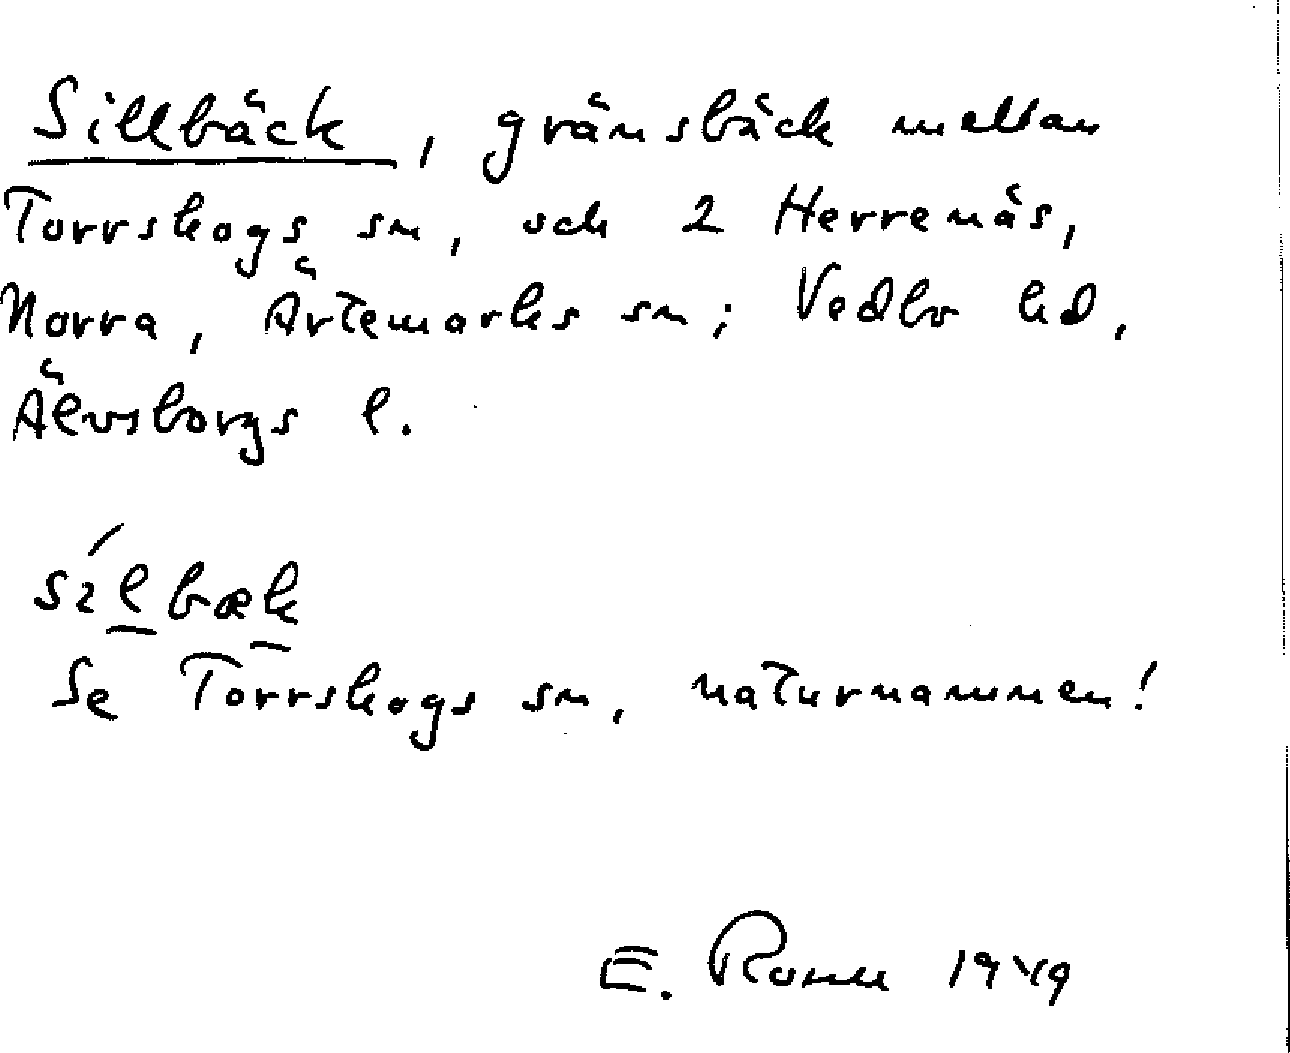 Sillbäck, gränsbäck mellan
Torrskogs sn, och 2 Herrenäs,
Norra, Ärtemarks sn; Vedbo hd,
Älvsborgs l.
sílbæk
Se Torrskogs sn, naturnamnen!
E. 1949